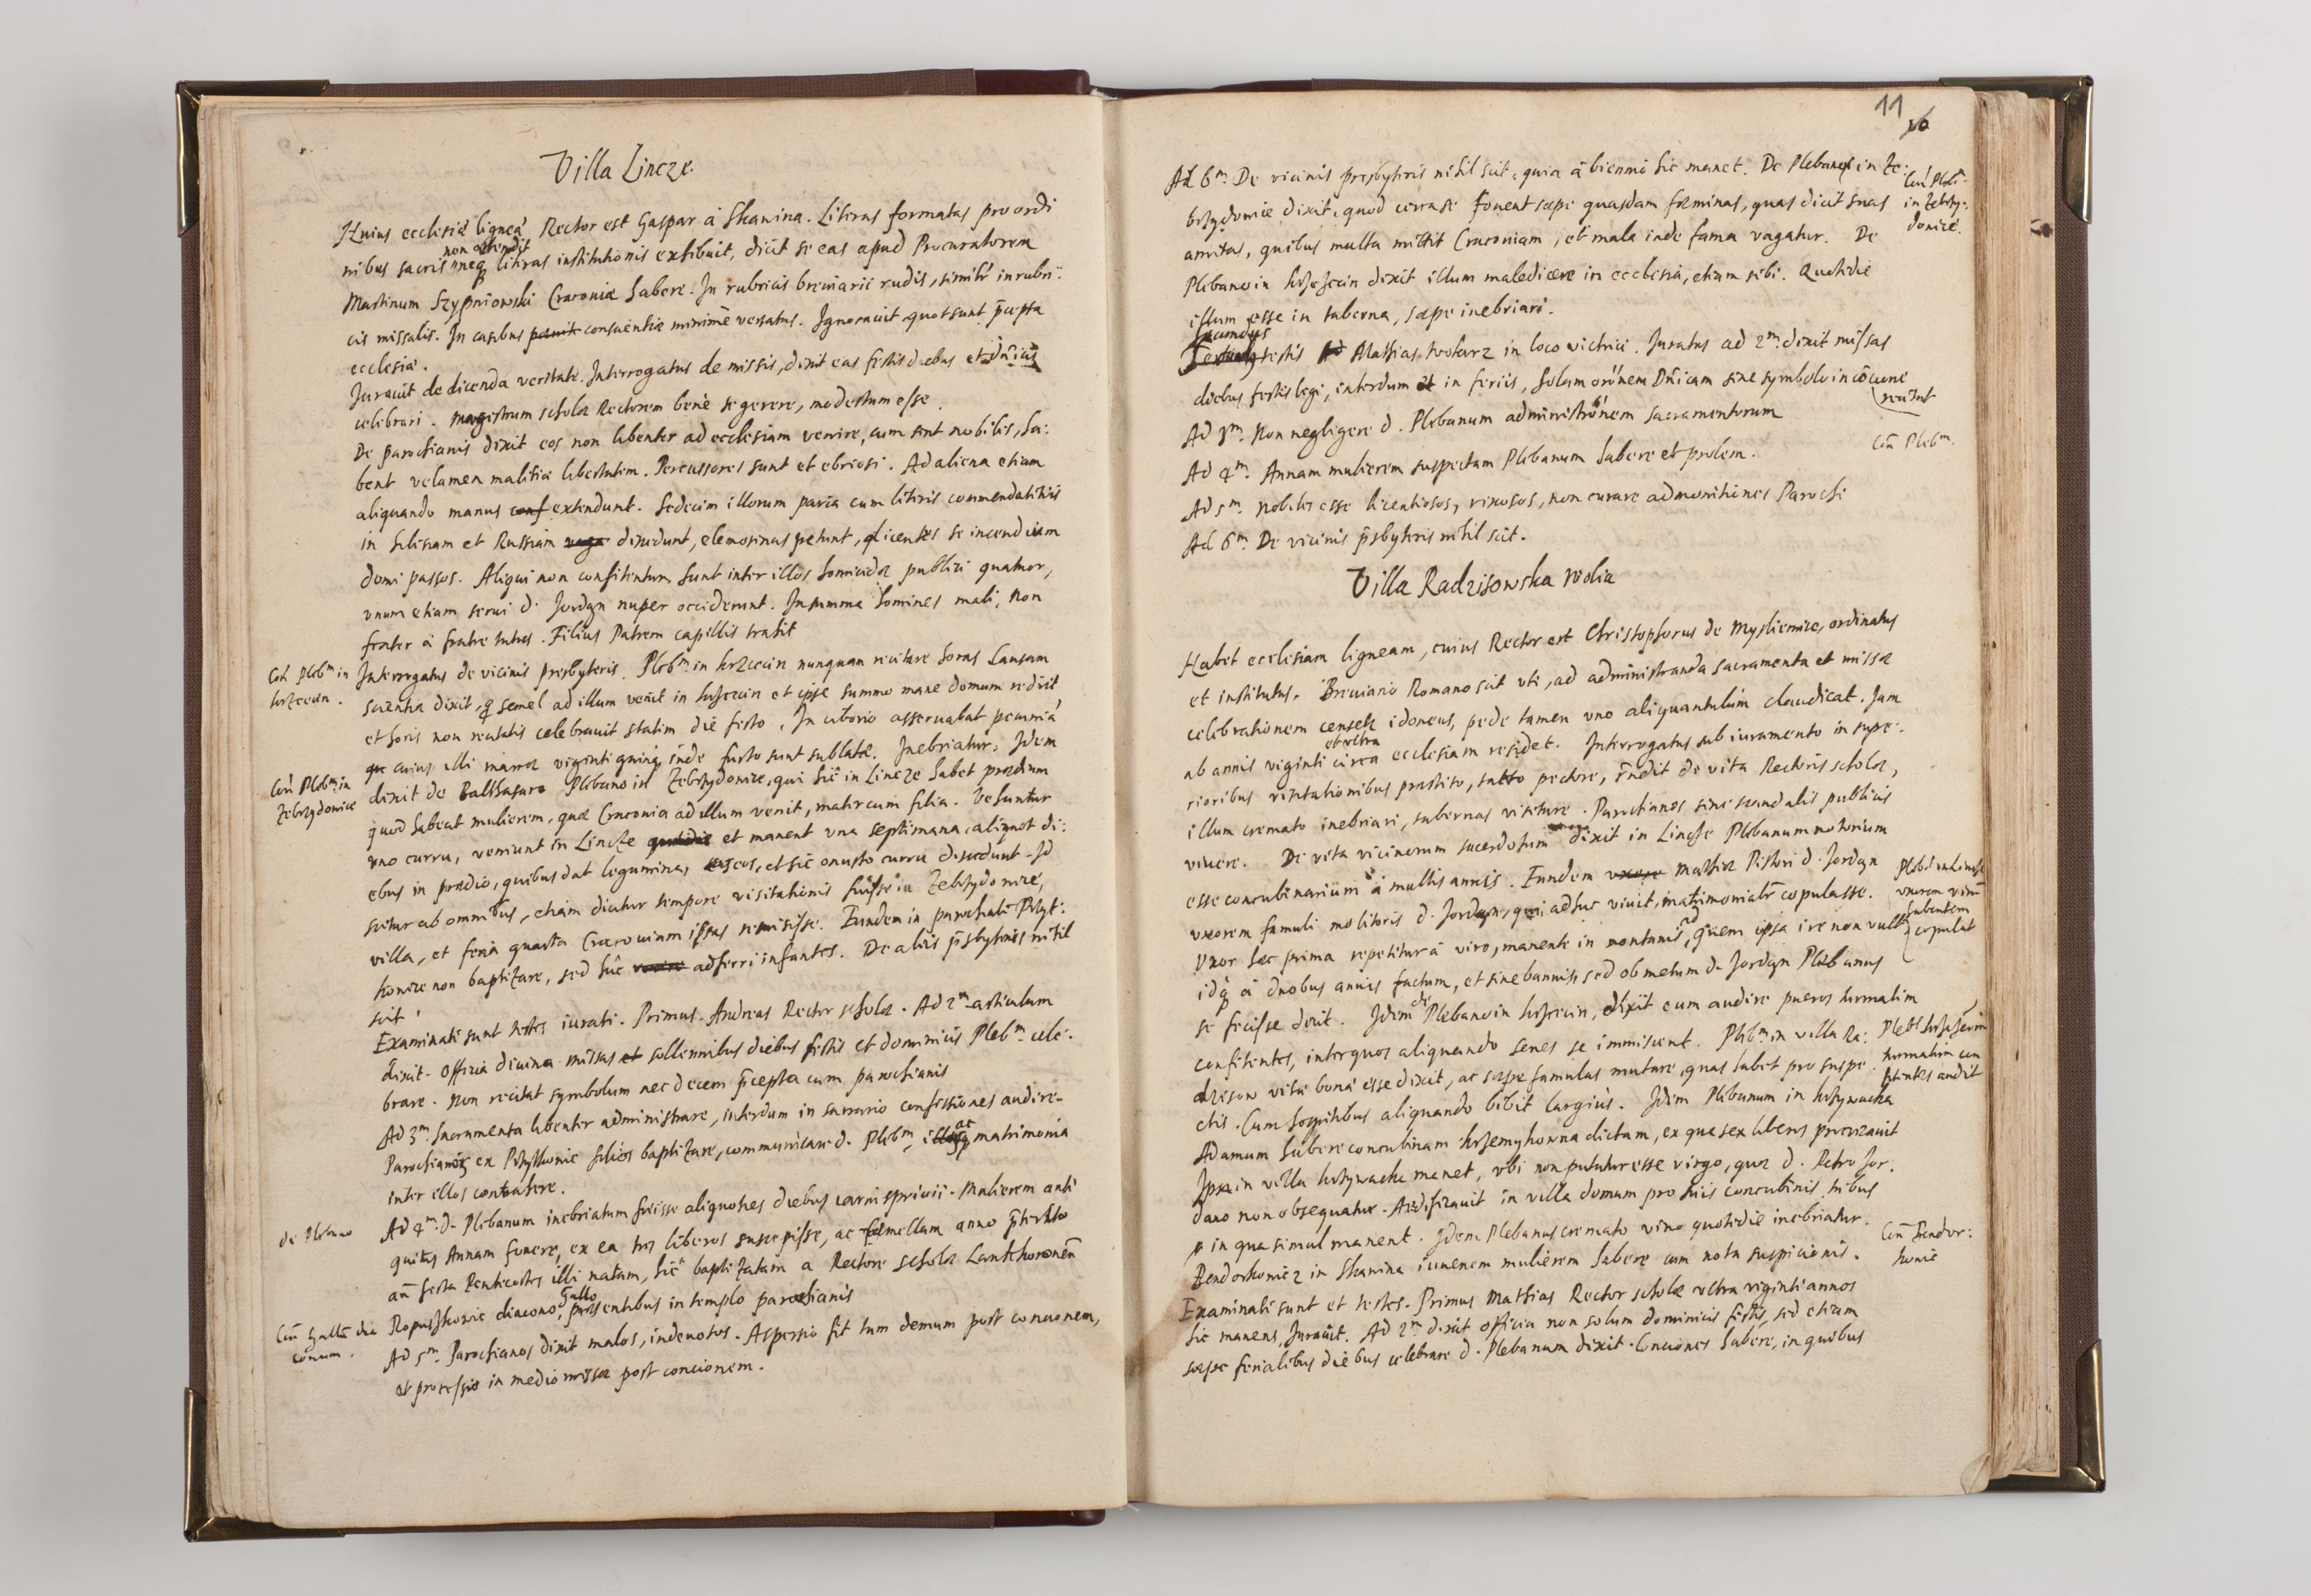 Villa Lincze.
Huius ecclesiae ligneae Rector est Gaspar à Skawina. Literas formatas pro ordi
non ostendit
nibus sacris neq literas institutionis exhibuit, dicit se eas apud Procuratorem
Martinum Szypniowski Cracoviae habere. In rubricis breviarii rudis, similr in rubri:
cis missalis. In casibus conscientiae minimè versatus. Ignoravit quot sunt pcepta
ecclesiae.
Juravit de dicenda veritate. Interrogatus de missis, dixit eas festis diebus et dnicis
celebrari. Magistrum scholae Rectorem benè se gerere, modestum esse.
De parochianis dixit eos non libenter ad ecclesiam venire, cum sint nobiles, ha:
bent velamen malitiae libertatem. Percussores sunt et ebriosi. Ad aliena etiam
aliquando manus extendunt. Sedecim illorum paria cum literis commendatitiis
in Silesiam et Russiam discedunt, elemosinas petunt, dicentes se incendium
domi passos. Aliqui non confitentur, sunt inter illos homicidae publici quatuor,
unum etiam servi d. Jordan nuper occiderunt. In summa homines mali, non
frater à fratre tutus. Filius Patrem capillis trahit
Con Plebm in
krzecin.
Interrogatus de vicinis presbyteris. Plebm in krzecin nunquam recitare horas causam
scientiae dixit, q semel ad illum venit in krzecin et ipse summo mane domum rediit
et horis non recitatis celebravit statim die festo. In ciborio asservabat pecuniā
cuius illi marcae viginti quinq inde furto sunt sublatae. Inebriatur. Idem
Con Plebm in
Zebrzydowice
dixit de Balthasaro Plebano in Zebrzydowice, qui hic in Lincze habet praedium
quod habeat mulierem, quae Cracovia ad illum venit, mater cum filia. Vehuntur
uno curru, veniunt in Lincze et manent una septimana, aliquot di:
ebus in praedio, quibus dat legumina, caseos, et sic onusto curru discedunt. Id
scitur ab omnibus, etiam dicitur tempore visitationis fuisse in Zebrzydowice,
villa, et feria quarta Cracoviam ipsas remisisse. Eundem in parochiali Przyt:
kowice non baptizare, sed huc adferri infantes. De aliis psbyteris nihil
scit.
Examinati sunt testes iurati. Primus Andreas Rector scholae. Ad 2m articulum
dixit. Officia divina missas sollennibus diebus festis et dominicis Plebm cele:
brare. Non recitat symbolum nec decem pcepta cum parochianis
Ad 3m. Sacramenta libenter administrare, interdum in sacrario confessiones audire.
Parochianos ex Przytkowic filios baptizare, communicare d. Plebm, ac matrimonia
inter illos contrahere.
de Plebano
Ad 4m. d. Plebanum inebriatum fuisse aliquoties diebus carnisprivii. Mulierem anti
quitus Annam fovere, ex ea tres liberos suscepisse, ac femellam anno pterito
an festa Pentecostes illi natam, hic baptizatam a Rectore scholae Lantchoronen
Con Gallū dia
conum.
Gallo
Ropuszkowic diacono, praesentibus in templo parochianis
Ad 5m. Parochianos dixit malos, indevotos. Aspersio fit tum demum post concionem,
et processio in medio missae post concionem.
11
10
Ad 6m. De vicinis presbyteris nihil scit, quia à biennio hic manet. De Plebano in Ze:
Con Pleb.
in Zebrzy:
dowice.
brzydowice dixit, quod foveat saepe quasdam foeminas, quas dicit suas
amitas, quibus multa mittit Cracoviam, et mala inde fama vagatur. De
Plebano in krzeczin dixit illum maledicere in ecclesia, etiam sibi. Quotidie
illum esse in taberna, saepe inebriari.
Secundus
testis Mathias kotarz in loco victrici. Juratus ad 2m dixit missas
diebus festis legi, interdum in feriis, solam orōnem Dnicam sine symbolo in cōcione
recitat
Ad 3m. Non negligere d. Plebanum administrōnem sacramentorum
Con Plebm.
Ad 4m. Annam mulierem suspectam Plebanum habere et prolem.
Ad 5m. Nobiles esse licentiosos, rixosos, non curare admonitiones Parochi
Ad 6m. De vicinis psbyteris nihil scit.
Villa Radzisowska wolia
Habet ecclesiam ligneam, cuius Rector est Christophorus de Myslienice, ordinatus
et institutus. Breviario Romano scit uti, ad administranda sacramenta et missae
celebrationem censetr idoneus, pede tamen uno aliquantulùm claudicat. Jam
et ultra
ab annis viginti circa ecclesiam residet. Interrogatus sub iuramento in supe:
rioribus visitationibus praestito, tacto pectore, rndit de vita Rectoris scholae,
illum cremato inebriari, tabernas visitare. Parochianos sine scandalis publicis
vivere. De vita vicinorum sacerdotum dixit in Lincze Plebanum notorium
esse concubinarium à multis annis. Eundem Mathiae Pistori d. Jordan
Pleb. in Lincze
uxorem virū
habentem
copulat
uxorem famuli molitoris d. Jordan, qui adhuc vivit, matrimonialr copulasse.
Uxor haec prima repetitur à viro, manente in montanis, ad quem ipsa ire non vult
idq à duobus annis factum, et sine bannis, sed ob metum d. Jordan Plebanus
se fecisse dicit. Idem de Plebano in krzecin, dixit eum audire pueros turmatim
confitentes, inter quos aliquando senes se immiscent. Plebm in villa Ra:
Pleb. krzeczin
turmatim con
fitentes audit
dziszow vitae bonae esse dixit, ac saepe famulas mutare, quas habet pro suspe
ctis. Cum hospitibus aliquando bibit largiùs. Idem Plebanum in krzywaczka
Adamum habere concubinam krzemykowna dictam, ex qua sex liberos procreavit
Ipsa in villa krzywaczka manet, ubi non putatur esse virgo, quae d. Petro Jor:
dano non obsequatur. Aedificavit in villa domum pro suis concubinis tribus
in qua simul manent. Idem Plebanus cremato vino quotidie inebriatur.
Con Bendor:
kowic
Bendorkowicz in Skawina iuvenem mulierem habere cum nota suspicionis.
Examinati sunt et testes. Primus Mathias Rector scholae ultra viginti annos
hic manens, Juravit. Ad 2m dixit officia non solum dominicis festis, sed etiam
saepe ferialibus diebus celebrare d. Plebanum dixit. Conciones habere, in quibus